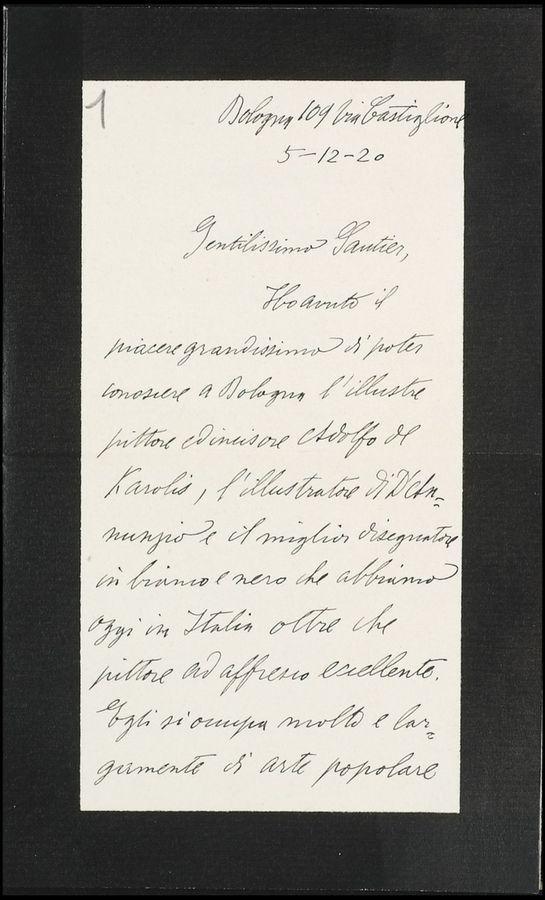 1
Bologna 109 Via Castiglione
5-12-20
Gentilissimo Gautier,
Ho avuto il
piacere grandissimo di poter
conoscere a Bologna l'illustre
pittore ed incisore Adolfo De
Karolis, l'illustratore di D'An=
nunzio e il miglior disegnatore
in bianco e nero che abbiamo
oggi in Italia oltre che
pittore ad affresco eccellente.
Egli si occupa molto e lar=
gamente di arte popolare